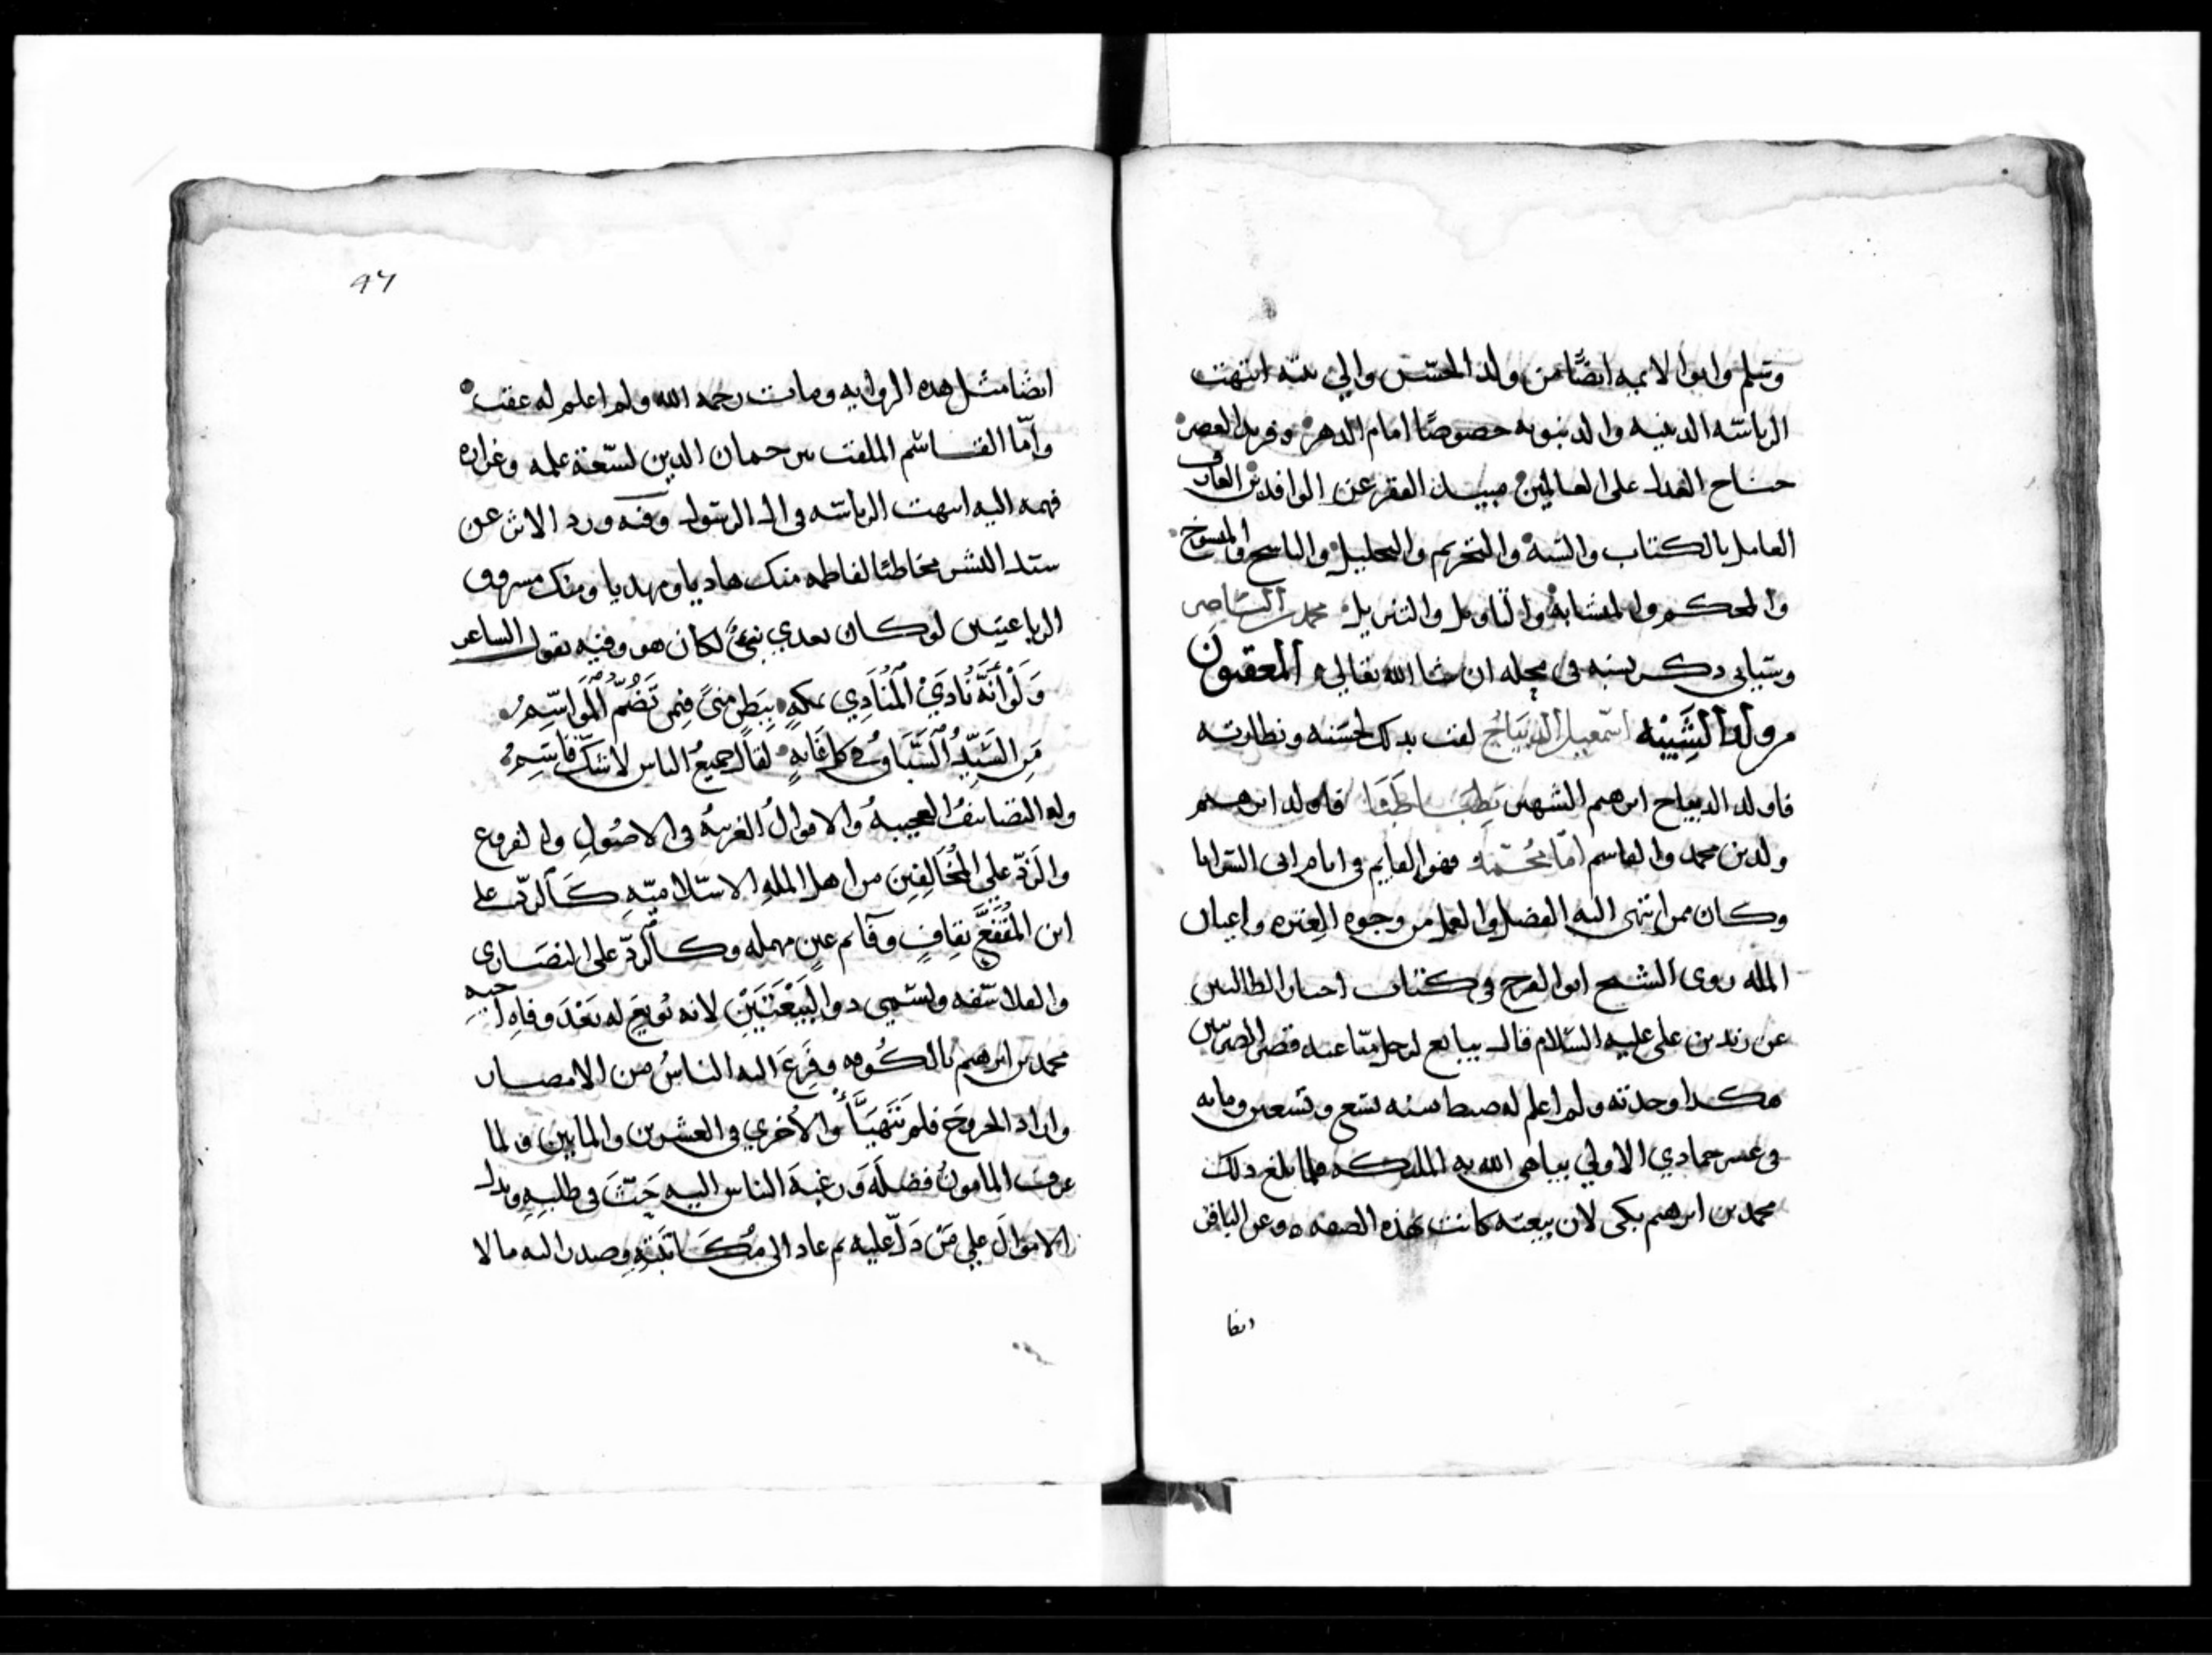 وسلم وابوا الايمه ايضًا من ولد الحسن والي بيته انتهت
الرياسه الدينيه والدنيويه خصوصًا امام الدهر وفريد العصر
العدل على العالمين مبيد الفقر عن الوافدين العارف
العامل بالكتاب والسنه والتحريم والتحليل والناسخ والمنسوخ
والمحكم والمتشابه والتاويل والتنزيل محمد الناصر
وسياتي ذكر نسبه في محله ان شا الله تعالى المعقبون
من ولد الشبيه اسمعيل الديباج لقب بذلك لحسنه ونظارته
فاولد الديباج ابرهيم الشهير بطباطبا فاولد ابرهيم
ولدين محمد والقاسم اما محمد فهو القايم في ايام ابى السرايا
وكان ممن انتهى اليه الفضل والعلم من وجوه العتره واعيان
المله روى الشيخ ابو الفرج في كتاب اخبار الطالبين
عن زيد بن علي عليه السلام قال يبايع لرجل منا عند قصر الضرتين
هكذا وجدته ولم اعلم له ضبط سنه تسع وتسعين ومايه
في عشر جمادي الاولي يباهي الله به الملايكه فلما بلغ ذلك
محمد بن ابرهيم بكى لان بيعته كانت بهذه الصفه وعن الباقر
ايضا
47
ايضًا مثل هذه الروايه ومات رحمه الله ولم اعلم له عقب
وامّا القاسم الملقب ترجمان الدين لسعة علمه وغزاره
فهمه اليه انتهت الرياسه في ال الرسول وفيه ورد الاثر عن
سيد البشر مخاطبًا لفاطمه منك هاديا ومهديا ومنك مسروق
الرباعيتين لو كان بعدي نبيٌّ لكان هو وفيه يقول الشاعر
وَلَوْ أَنَّهُ نَادَيْ اَلْمُنَادِي بمكهٍ بِبَطنِ منىً فِيمن تَضُمُّ اَلْمَوَاسِمُ
مَنِ السَّيِّدُ السَّبَاقُ في كل غَايةٍ لقالَ جميعُ الناس لا شكَّ قَاسِمُ
وله التصانيفُ العجيبهُ والاقوالُ الغريبهُ في الاصُولِ والفروع
والرَّدّ علي المُخَالِفِينَ من اهل المله الاسلاميّهِ كَالردِّ على
ابن المُقَفَّع بقافٍ وفآءٍ ثم عينٍ مهمله وكالردّ على النصَارى
والفلاسفه ويسمي ذو البَيْعَتَيْنِ لانه بُويِعَ له بَعْدَ وفاهِ اخيهِ
محمد بن ابرهيم بالكُوفه وفَزِعَ اليه الناسُ من الامصار
واراد الخروجَ فلم يَتَهَيَّأ والأُخري في العشرين والمايين فلما
عرف المامونُ فضلَهُ وَرغبةَ الناس اليه حَثَّ في طلبِهِ وبذل
الاموالَ علي مَنْ دَلّ عليه ثم عاد الى مُكَاتَبَتِهِ وصدر اليه مالا